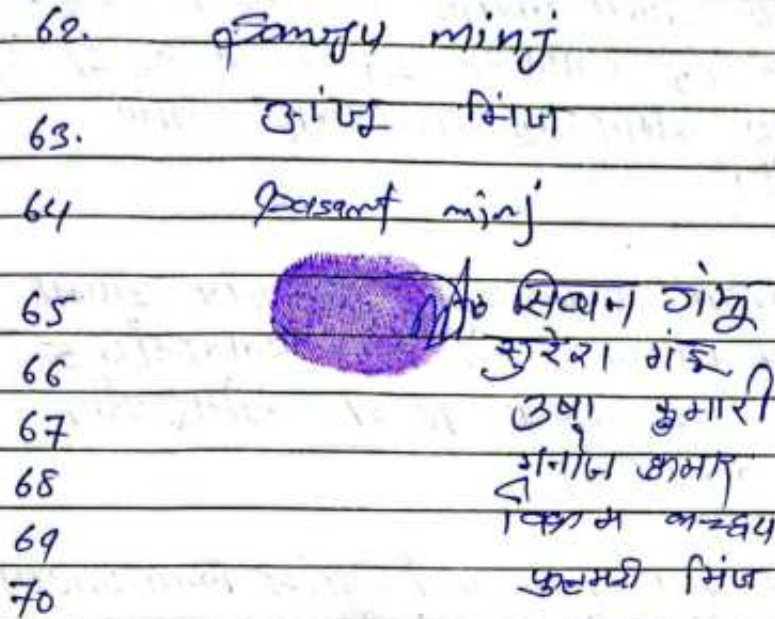 62. Sanju minj
63. अंजु मिंज
64 Basant minj
65 सिवान गंझू
66 सुरेश गंझू
67 उषा कुमारी
68 मनोज कुमार
69 विक्रम कच्छप
70 फुलमरी मिंज